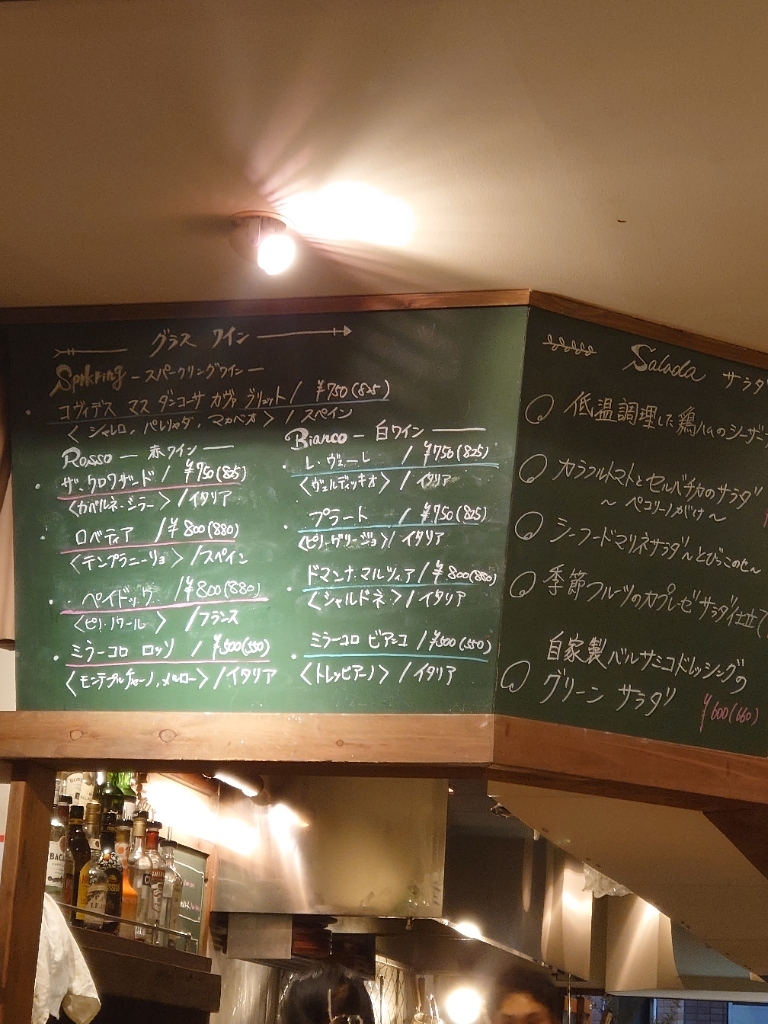 グラス ワイン
Sprkring -スパークリングワイン-
コヴィデス マス ダンコーサ カヴァ ブリュット / ¥750(825)
< シャレロ, パレリャダ, マカベオ > / スペイン
Rosso - 赤ワイン-
・ザ・クロワザード / ¥750(825)
<カベルネ・シラー> / イタリア
・ロベティア / ¥800(880)
<テンプラニーリョ> / スペイン
・ペイドック / ¥800(880)
<ピノ・ノワール> / フランス
・ミラーコロ ロッソ / ¥500(550)
<モンテプルチャーノ, メルロー> / イタリア
Bianco - 白ワイン-
・レ・ヴェーレ / ¥750(825)
<ヴェルディッキオ> / イタリア
・プラート / ¥750(825)
<ピノ・グリージョ> / イタリア
・ドマンナ マルツィア / ¥800(880)
<シャルドネ> / イタリア
・ミラーコロ ビアンコ / ¥500(550)
<トレッビアーノ> / イタリア
Salada サラダ
低温調理した鶏ハムのシーザー
カラフルトマトとセルバチカのサラダ
~ペコリーノがけ~
シーフードマリネサラダ~とびっこのせ~
季節フルーツのカプレーゼサラダ仕立て
自家製バルサミコドレッシングの
グリーン サラダ ¥600(660)